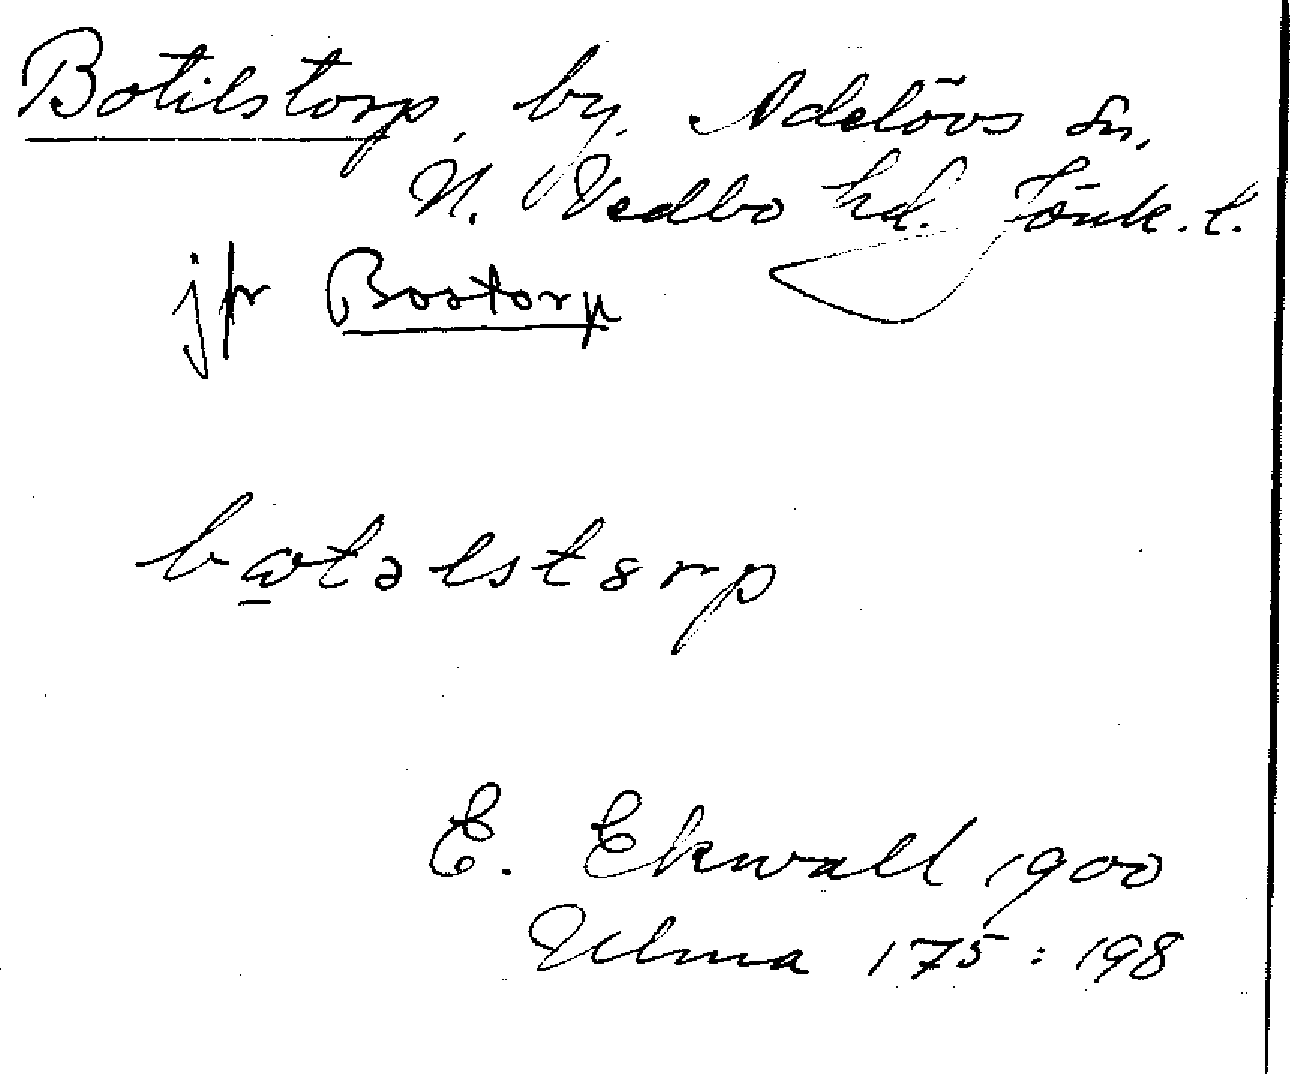 Botilstorp, by, Adelövs sn,
N. Vedbo hd. Jönk. l.
jfr Bostorp
bωtəlstɞrp
E. Ekwall 1900
Ulma 175:198